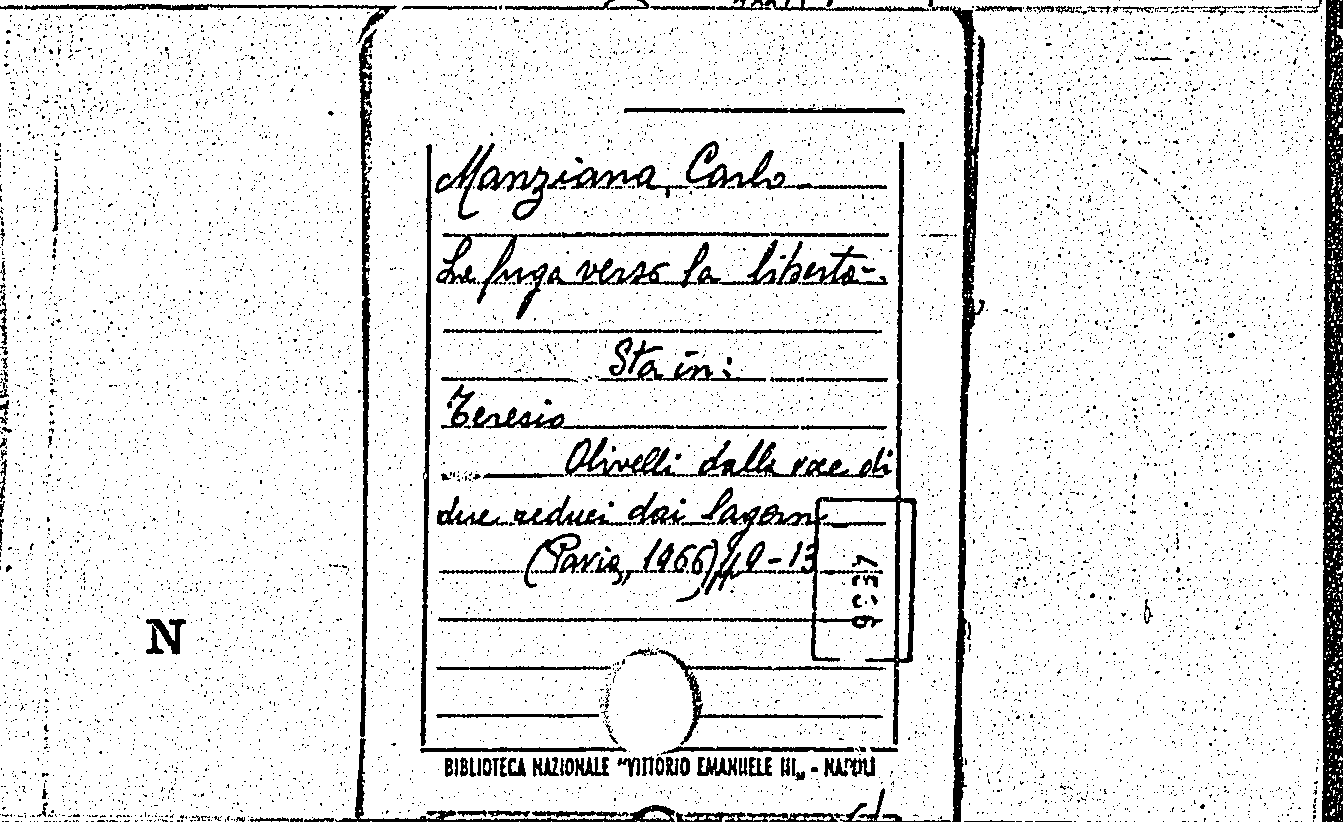 Manziana, Carlo
La fuga verso la libertà.
Sta in:
Teresio
Olivelli dalla voce di
due reduci dai lagern
(Pavia, 1966), pp. 9-13
N
BIBLIOTECA NAZIONALE "VITTORIO EMANUELE III„ - NAPOLI